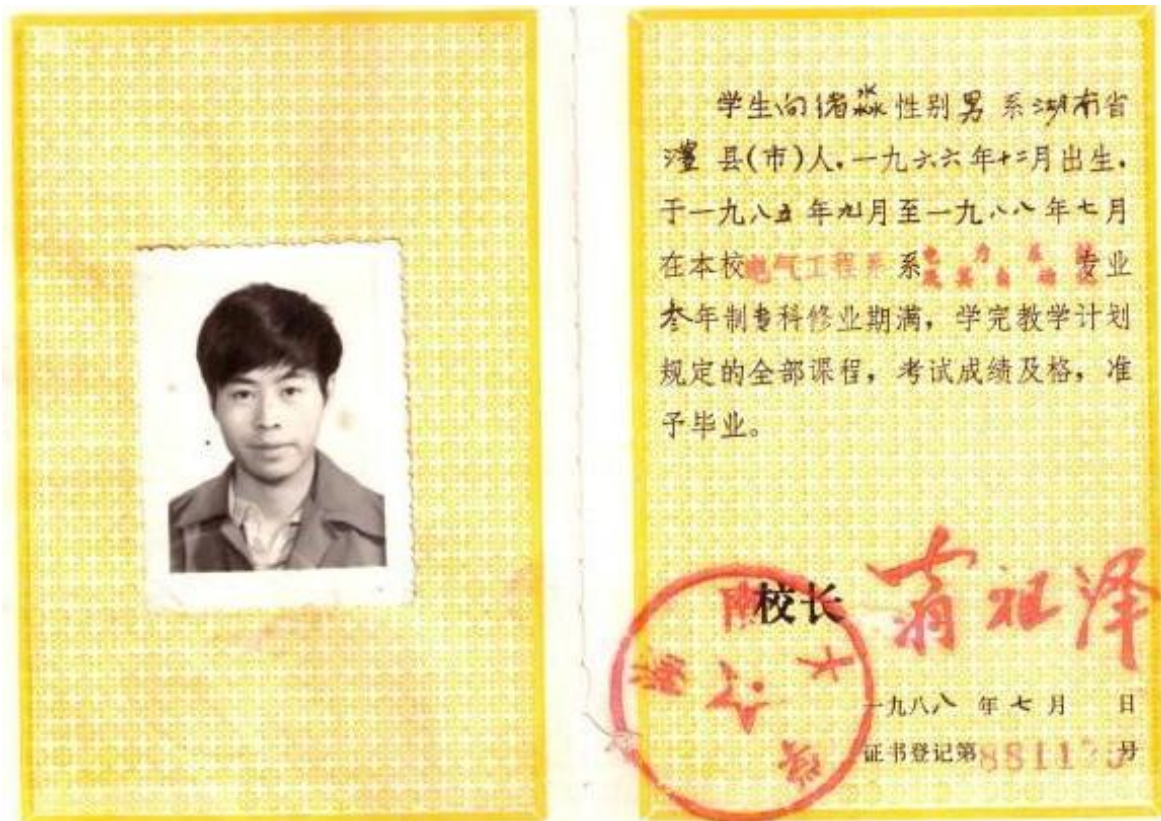 学生向绪淼性别男系湖南省
澧县(市)人．一九六六年十二月出生．
于一九八五年九月至一九八八年七月
在本校电气工程系系电力系统及其自动化专业
叁年制专科修业期满，学完教学计划
规定的全部课程，考试成绩及格，准
予毕业。
校长 翁祖泽
湖南大学
一九八八年七月 日
证书登记第 号